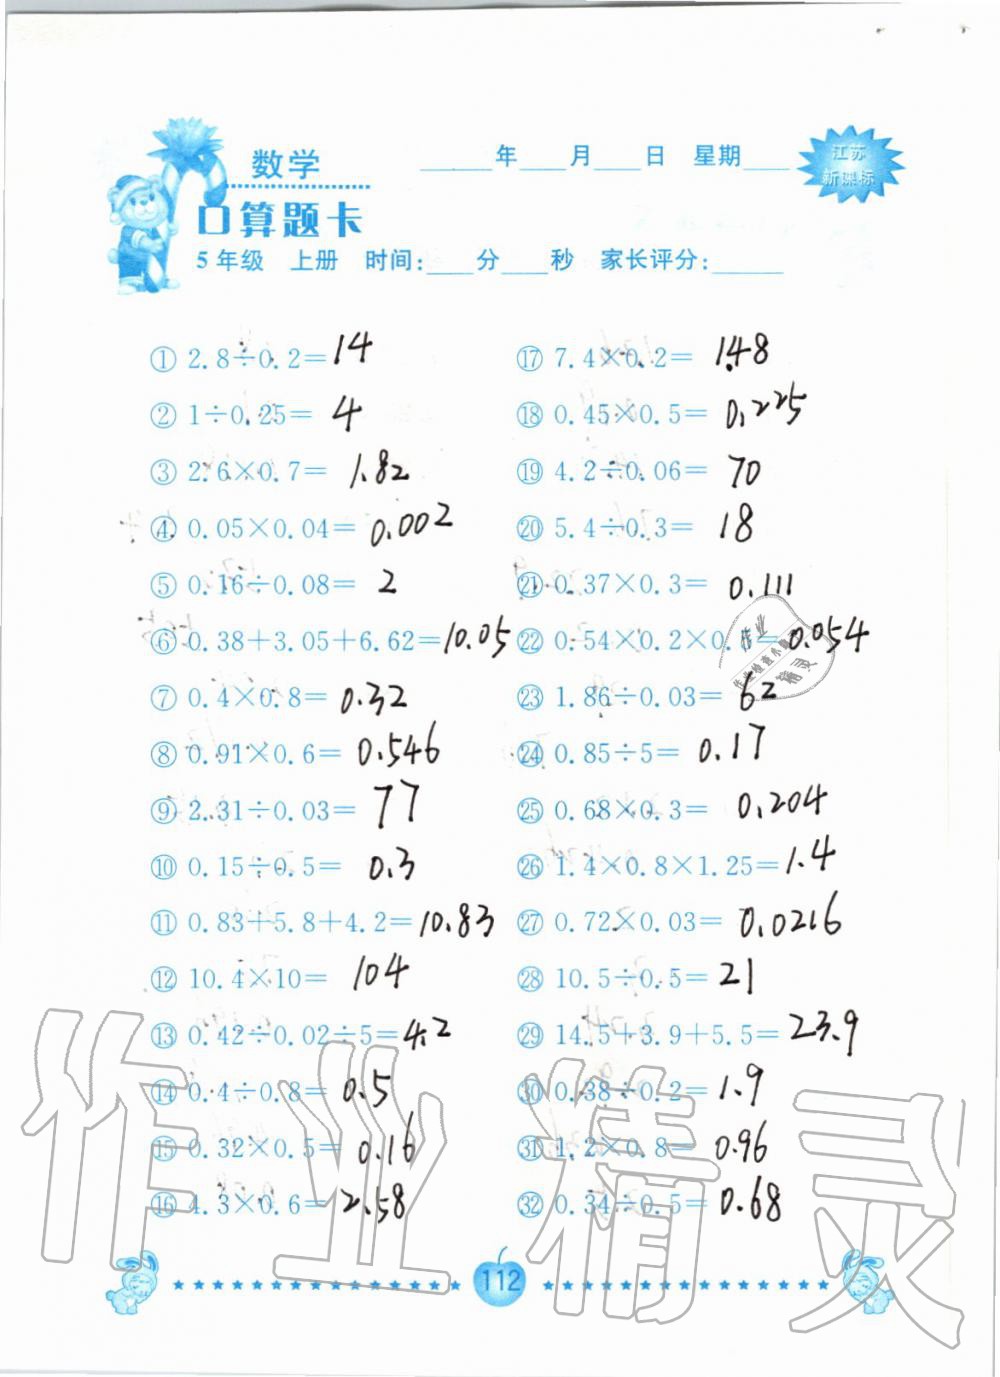 数学
____年____月____日 星期____
江苏
新课标
口算题卡
5年级 上册 时间:____分____秒 家长评分:____
① 2.8÷0.2=14
② 1÷0.25=4
③ 2.6×0.7=1.82
④ 0.05×0.04=0.002
⑤ 0.16÷0.08=2
⑥ 0.38+3.05+6.62=10.05
⑦ 0.4×0.8=0.32
⑧ 0.91×0.6=0.546
⑨ 2.31÷0.03=77
⑩ 0.15÷0.5=0.3
⑪ 0.83+5.8+4.2=10.83
⑫ 10.4×10=104
⑬ 0.42÷0.02÷5=4.2
⑭ 0.4÷0.8=0.5
⑮ 0.32×0.5=0.16
⑯ 4.3×0.6=2.58
⑰ 7.4×0.2=1.48
⑱ 0.45×0.5=0.225
⑲ 4.2÷0.06=70
⑳ 5.4÷0.3=18
㉑ 0.37×0.3=0.111
㉒ 0.54×0.2×0. =0.054
㉓ 1.86÷0.03=62
㉔ 0.85÷5=0.17
㉕ 0.68×0.3=0.204
㉖ 1.4×0.8×1.25=1.4
㉗ 0.72×0.03=0.0216
㉘ 10.5÷0.5=21
㉙ 14.5+3.9+5.5=23.9
㉚ 0.38÷0.2=1.9
㉛ 1.2×0.8=0.96
㉜ 0.34÷0.5=0.68
作业
精灵
作业精灵
112